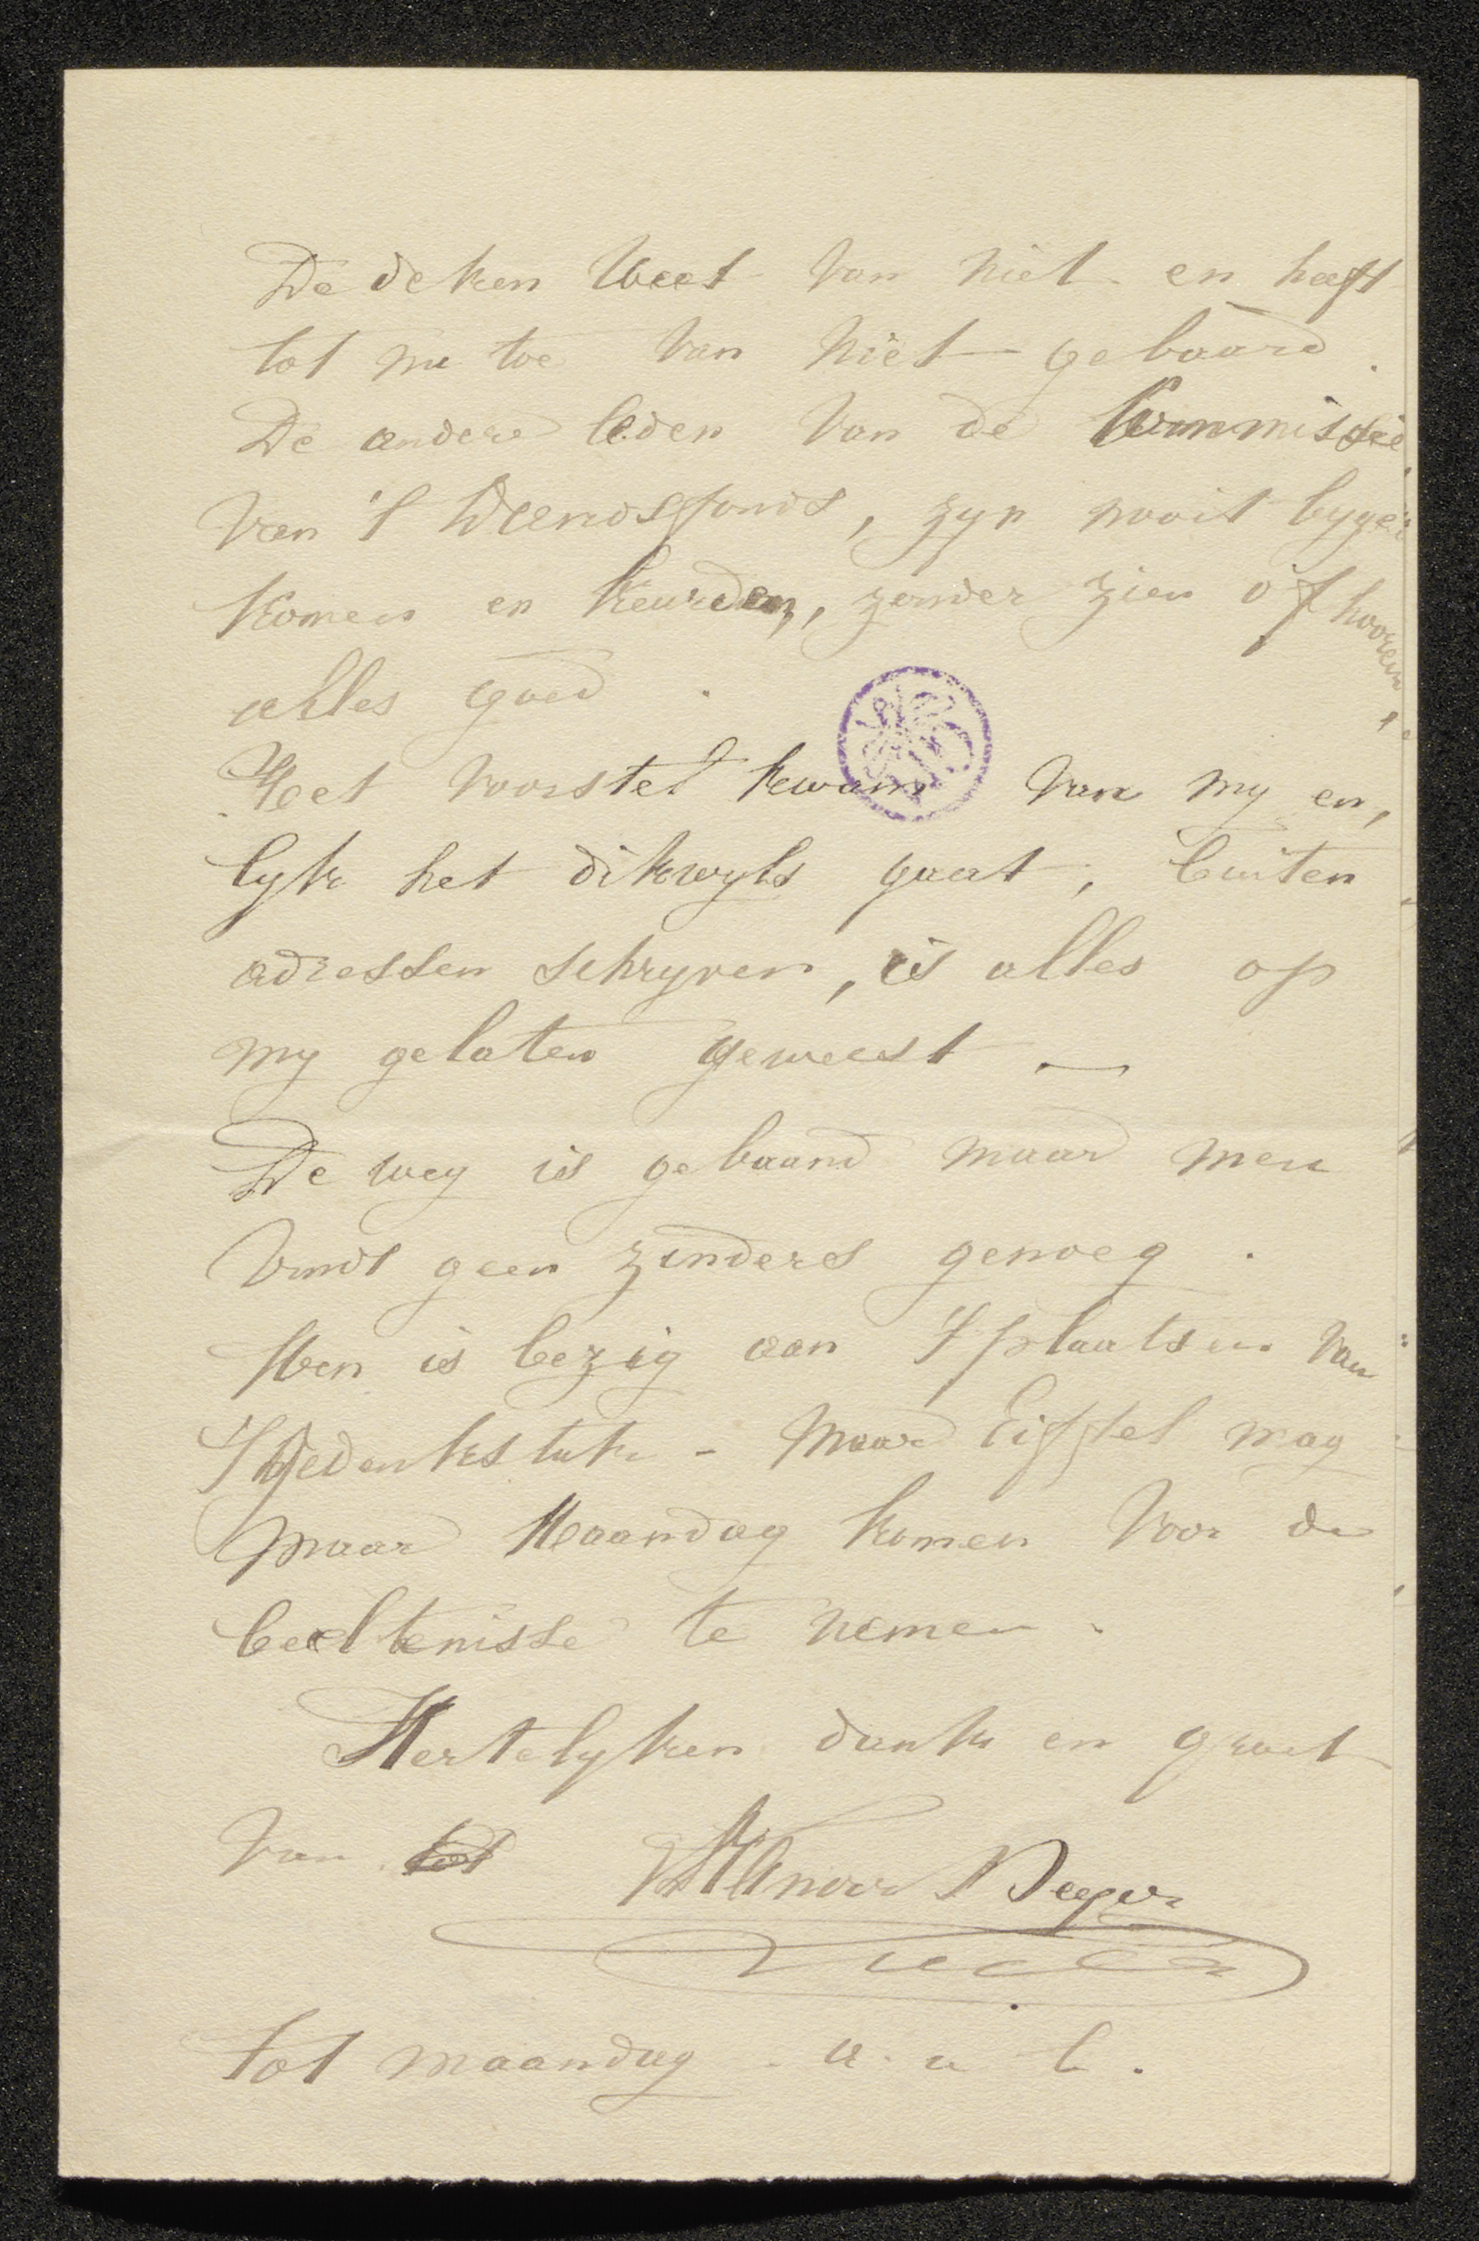 De deken weet van niet en heeft
tot nu toe van niet gebaard.
De andere leden van de Commissie
van 't Davidsfonds, zyn nooit byge
komen en keurden, zonder zien of hooren,
alles goed.
Het voorstel kwam van my en,
lyk het dikwyls gaat, buiten
adressen schryven, is alles op
my gelaten geweest —
De weg is gebaand maar men
vindt geen zinders genoeg.
Men is bezig aan 't plaatsen van
't gedenkstuk - maar Eiffel mag
maar Maandag komen voor de
beeltenisse te nemen.
Hertelyken dank en groet
van
tot maandag